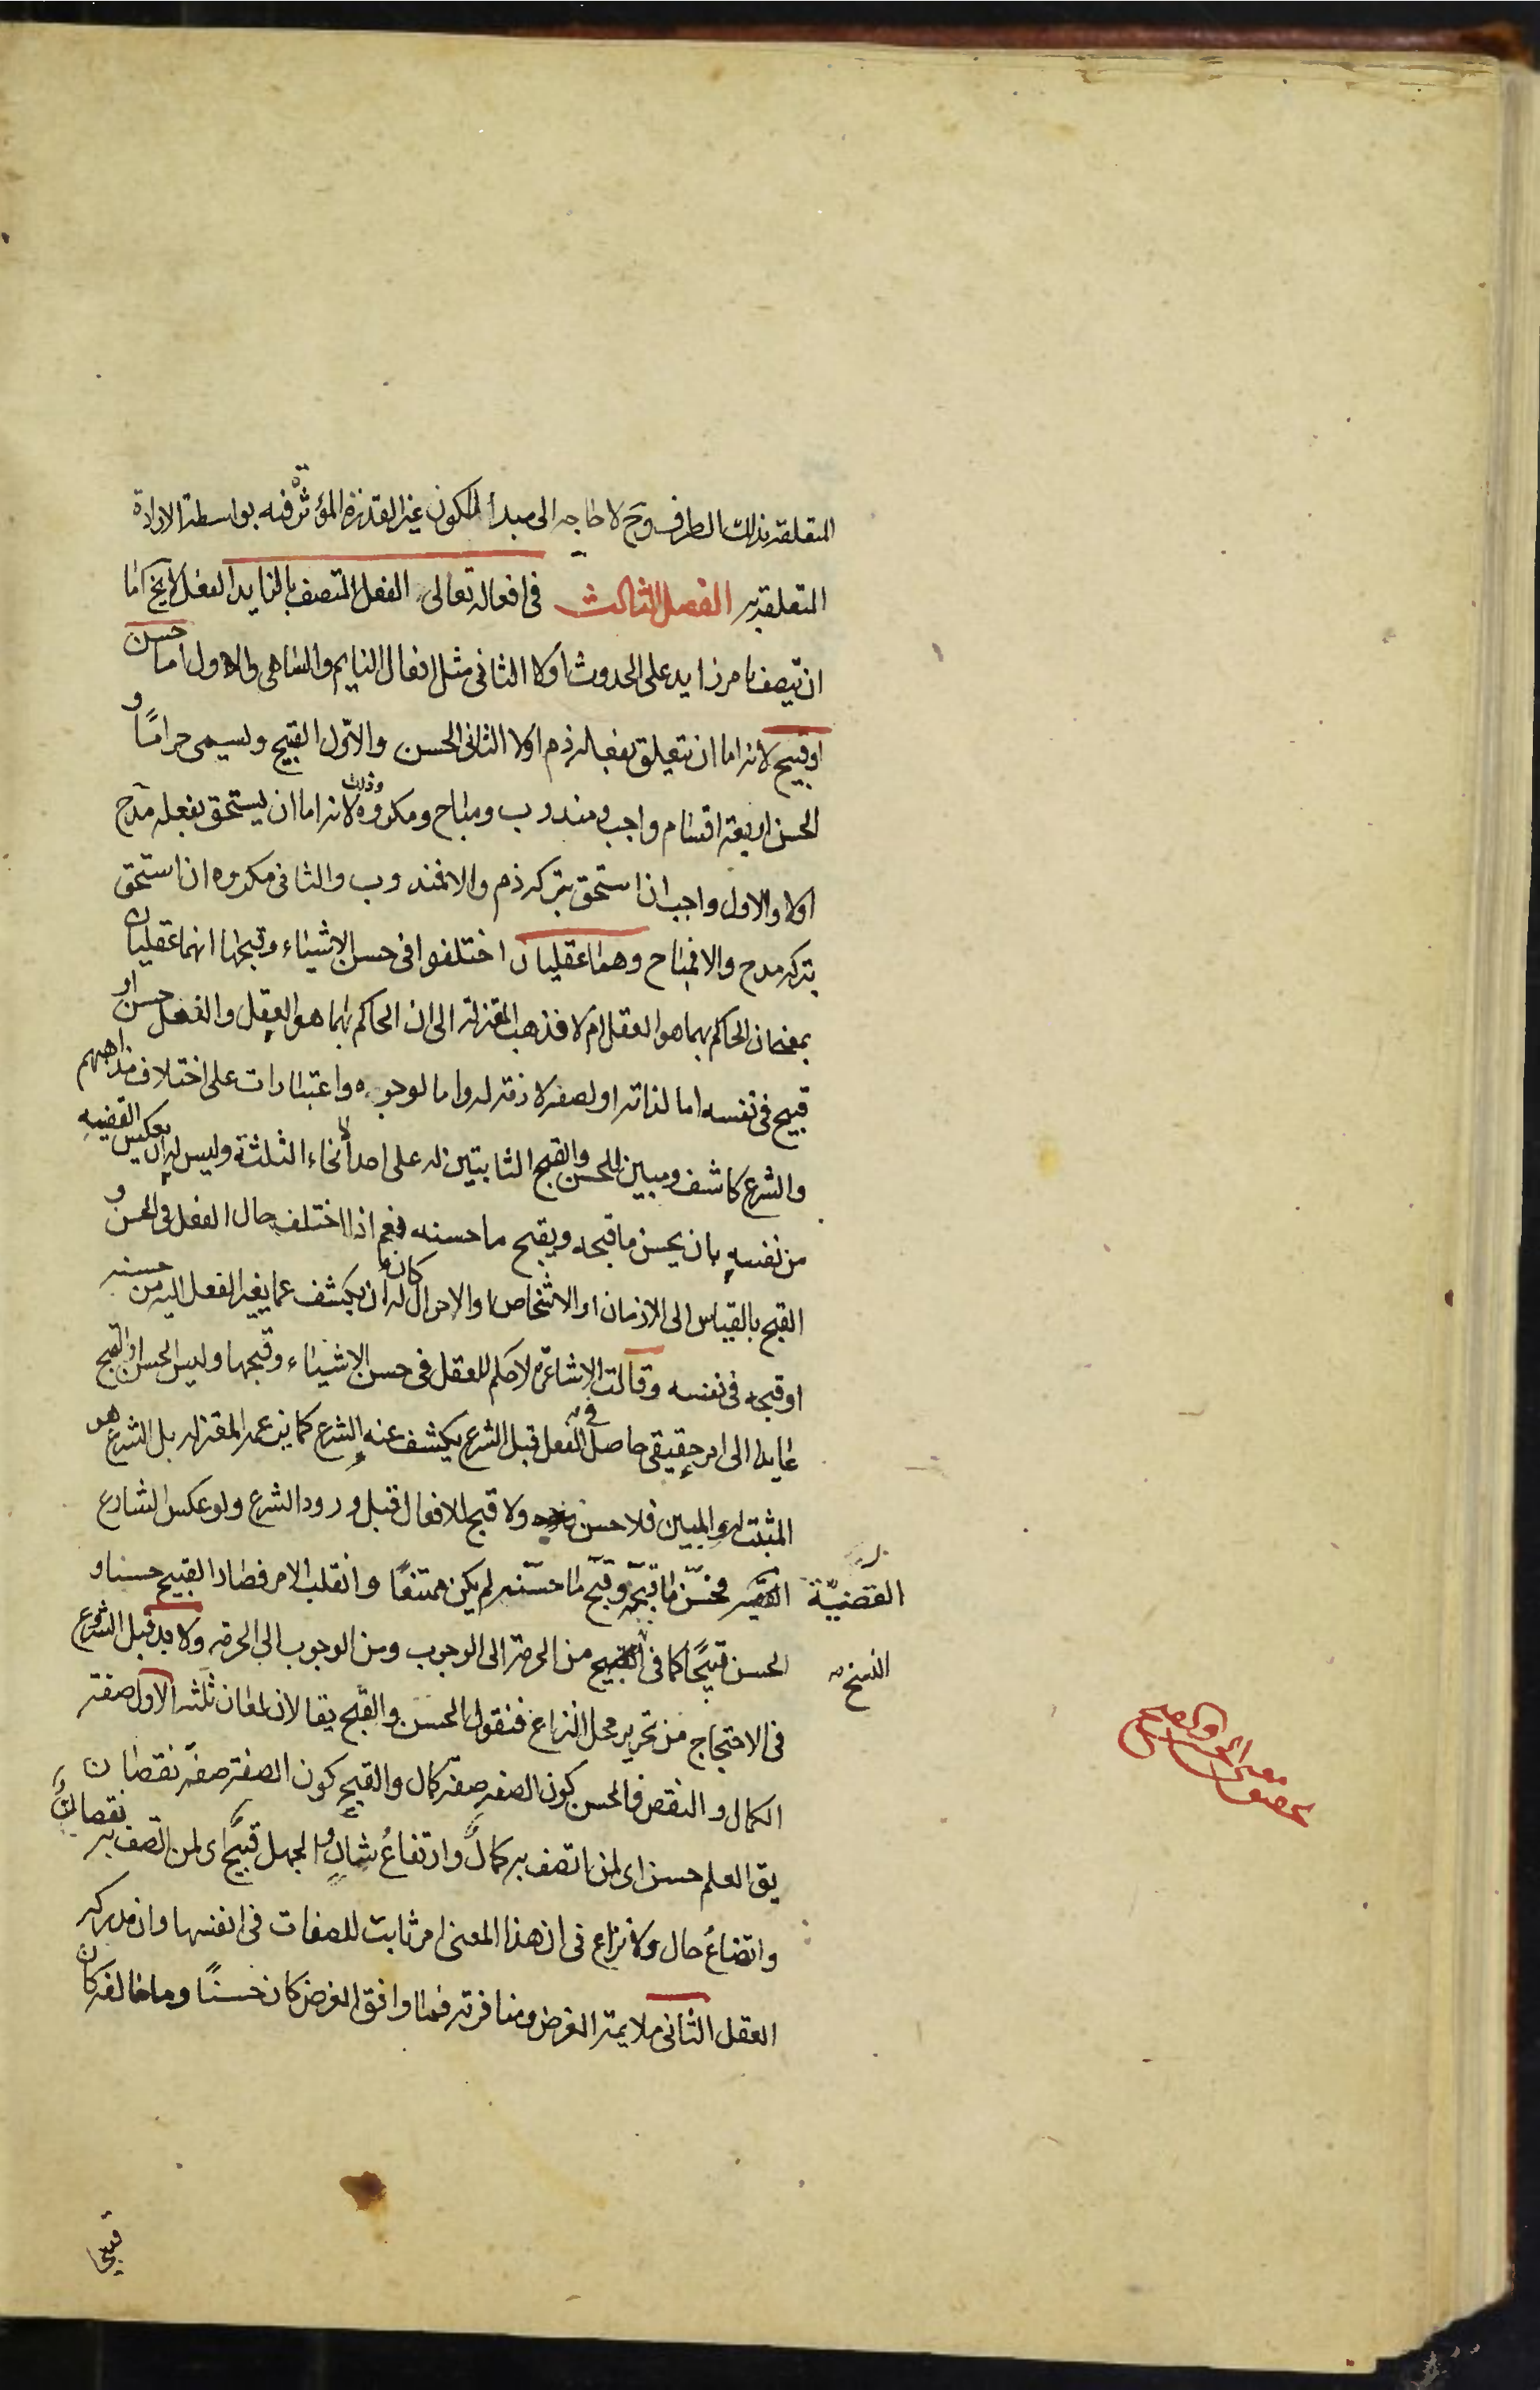 المتعلقه بذلك الطرف وح لا حاجه الى مبدأ للكون غير القدرة المؤثرة فيه بواسطة الارادة
المتعلقة به الفصل الثالث فى افعاله تعالى الفعل المتصف بالزايد الفعل لا يخ اما
ان يتصف بامر زايد على الحدوث اولا الثانى مثل افعال النايم والساهى والاول اما حسن
او قبيح لانه اما ان يتعلق بفعله ذم اولا الثانى الحسن والاوّل القبيح ويسمى حرامًا و
الحسن اربعة اقسام واجب ومندوب ومباح ومكروه وذلك لانه اما ان يستحق بفعله مدح
اولا والاول واجب ان استحق بتركه ذم والا فمندوب والثانى مكروه ان استحق
بتركه مدح والا فمباح وهما عقليان اختلفوا فى حسن الاشياء وقبحها انهما عقليان
بمعنى ان الحاكم بهما هو العقل ام لا فذهب المعتزلة الى ان الحاكم بهما هو العقل والفعل حسن او
قبيح فى نفسه اما لذاته او لصفه لازمة له واما لوجوه واعتبارات على اختلاف مذاهبهم
والشرع كاشف ومبين للحسن والقبح الثابتين له على احد الانحاء الثلثة وليس له ان يعكس القضيه
من نفسه بان يحسن ما قبحه ويقبح ما حسنه نعم اذا اختلف حال الفعل فى الحسن و
القبح بالقياس الى الازمان او الاشخاص او الاحوال كان له ان يكشف عما يغير الفعل اليه من حسنه
او قبحه فى نفسه وقالت الاشاعرة لا حكم للعقل فى حسن الاشياء وقبحها وليس الحسن او القبح
عايدا الى امر حقيقى حاصل فى الفعل قبل الشرع يكشف عنه الشرع كما يزعمه المعتزله بل الشرع هو
المثبت له والمبين فلا حسن ولا قبح للافعال قبل ورود الشرع ولو عكس الشارع
القضيّة فحسّن ما قبّحه وقبّح ما حسّنه لم يكن ممتنعًا وانقلب الامر فصار القبيح حسنا و
الحسن قبيحًا كما فى النسخ من الحرمة الى الوجوب ومن الوجوب الى الحرمة ولا بد قبل الشروع
فى الاحتجاج من تحرير محل النزاع فنقول الحسن والقبح يقالان لمعان ثلثه الاول صفة
الكمال والنقص فالحسن كون الصفه صفه كمال والقبح كون الصفة صفة نقصان
يق العلم حسن اى لمن اتصف به كمالٌ وارتفاعُ شانٍ والجهل قبيحٌ اى لمن اتصف به نقصانٌ
واتضاعُ حال ولا نزاع فى ان هذا المعنى امر ثابت للصفات فى انفسها وان مدركه
العقل الثانى ملايمة الغرض ومنافرته فما وافق الغرض كان حسنًا وما خالفه كان
قبيحا